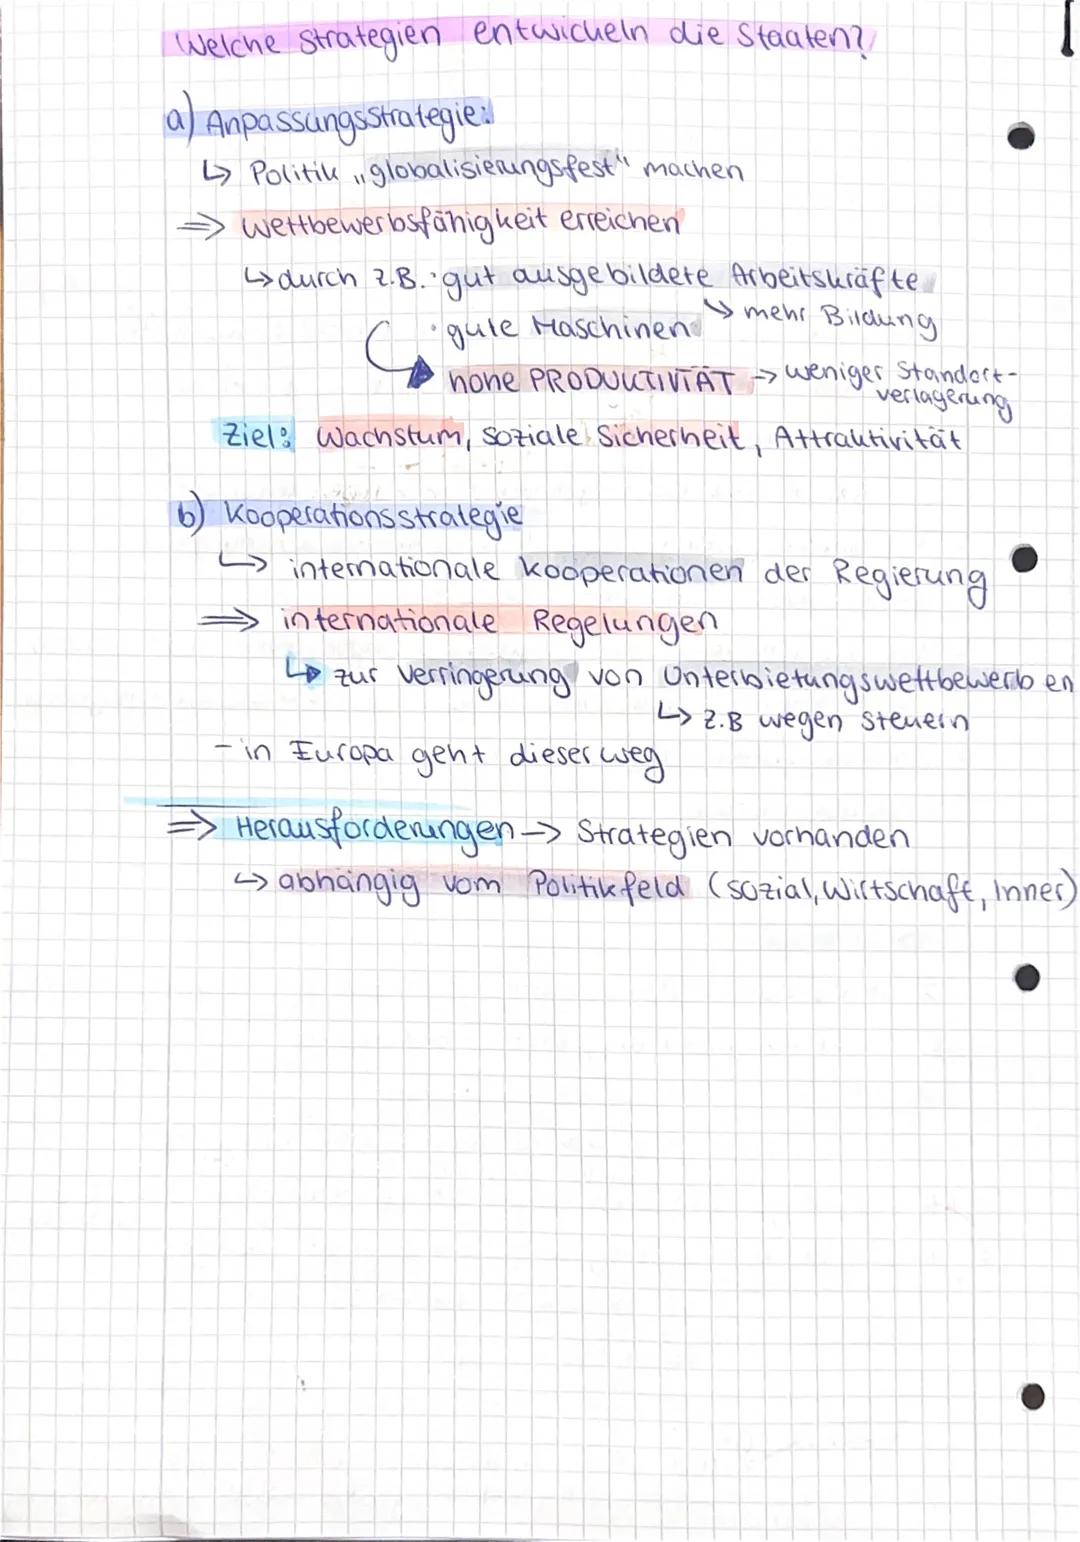 Welche Strategien entwickeln die Staaten?
a) Anpassungsstrategie:
↳ Politik „globalisierungsfest" machen
⇒ Wettbewerbsfähigkeit erreichen
↳ durch z.B. · gut ausgebildete Arbeitskräfte
↳ mehr Bildung
· gute Maschinen
hohe PRODUKTIVITÄT → weniger Standort-
verlagerung
Ziel: Wachstum, soziale Sicherheit, Attraktivität
b) Kooperationsstrategie
↳ internationale Kooperationen der Regierung
⇒ internationale Regelungen
↳ zur Verringerung von Unterbietungswettbewerben
↳ z.B wegen Steuern
- in Europa geht dieser weg
⇒ Herausforderungen → Strategien vorhanden
↳ abhängig vom Politikfeld (sozial, Wirtschaft, Inner)